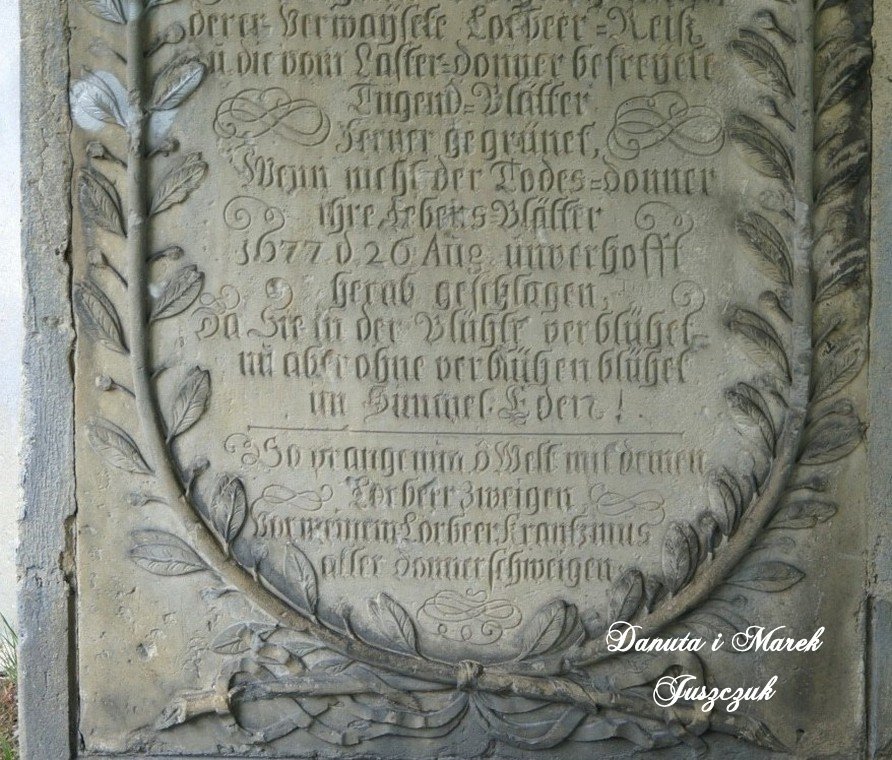 derer Verwaÿsete Lorbeer-Reiß,
ũ die vom Laster-donner befreÿete
Tugend-Blätter
Ferner gegrünet,
Wenn nicht der Todes-donner
ihre Lebens-Blätter
1677 d 26 Aug. unverhofft
herab geschlagen,
Da Sie in der Blühte verblühet,
nũ aber ohne verblühen blühet
im Himmel-Eden!
So prange nun ô Welt mit deinen
Lorbeer zweigen
Vor meinem Lorbeer Krantz mus
aller donner schweigen
Danuta i Marek
Juszczuk